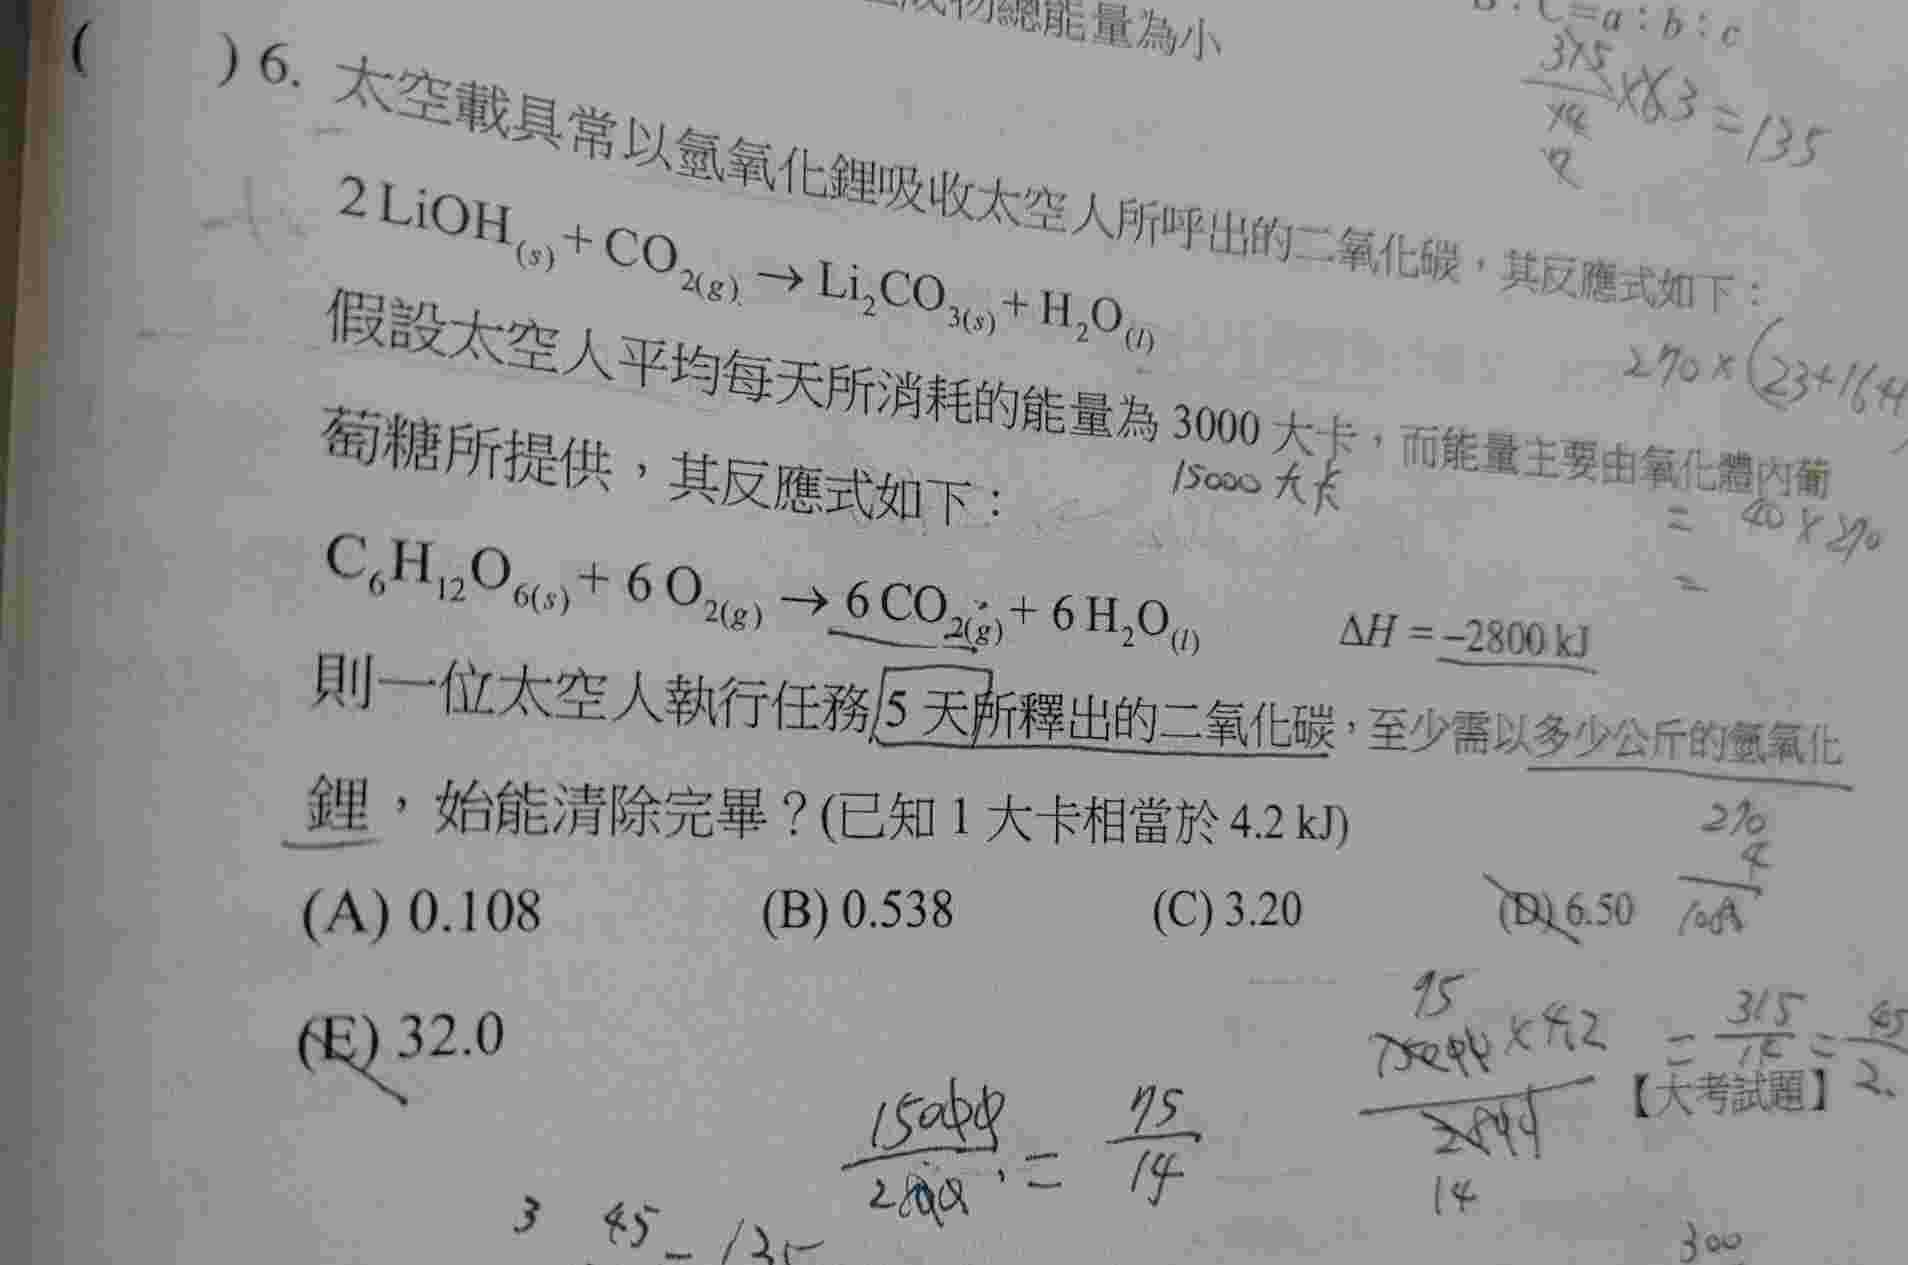 物總能量為小
C=a:b:c
315
×63=135
( )6. 太空載具常以氫氧化鋰吸收太空人所呼出的二氧化碳,其反應式如下:
2 LiOH(s) + CO2(g) → Li2CO3(s) + H2O(l)
270×(23+16+
假設太空人平均每天所消耗的能量為 3000 大卡,而能量主要由氧化體內葡
15000 大卡
= 40×270
萄糖所提供,其反應式如下:
=
C6H12O6(s) + 6 O2(g) → 6 CO2(g) + 6 H2O(l) ΔH = −2800 kJ
則一位太空人執行任務 5 天所釋出的二氧化碳,至少需以多少公斤的氫氧化
鋰,始能清除完畢?(已知 1 大卡相當於 4.2 kJ)
270
4
(A) 0.108 (B) 0.538 (C) 3.20 (D) 6.50
(E) 32.0
75
×4.2 = 315 = 45
14
【大考試題】
15000 = 75
14
3 45 = 135
300